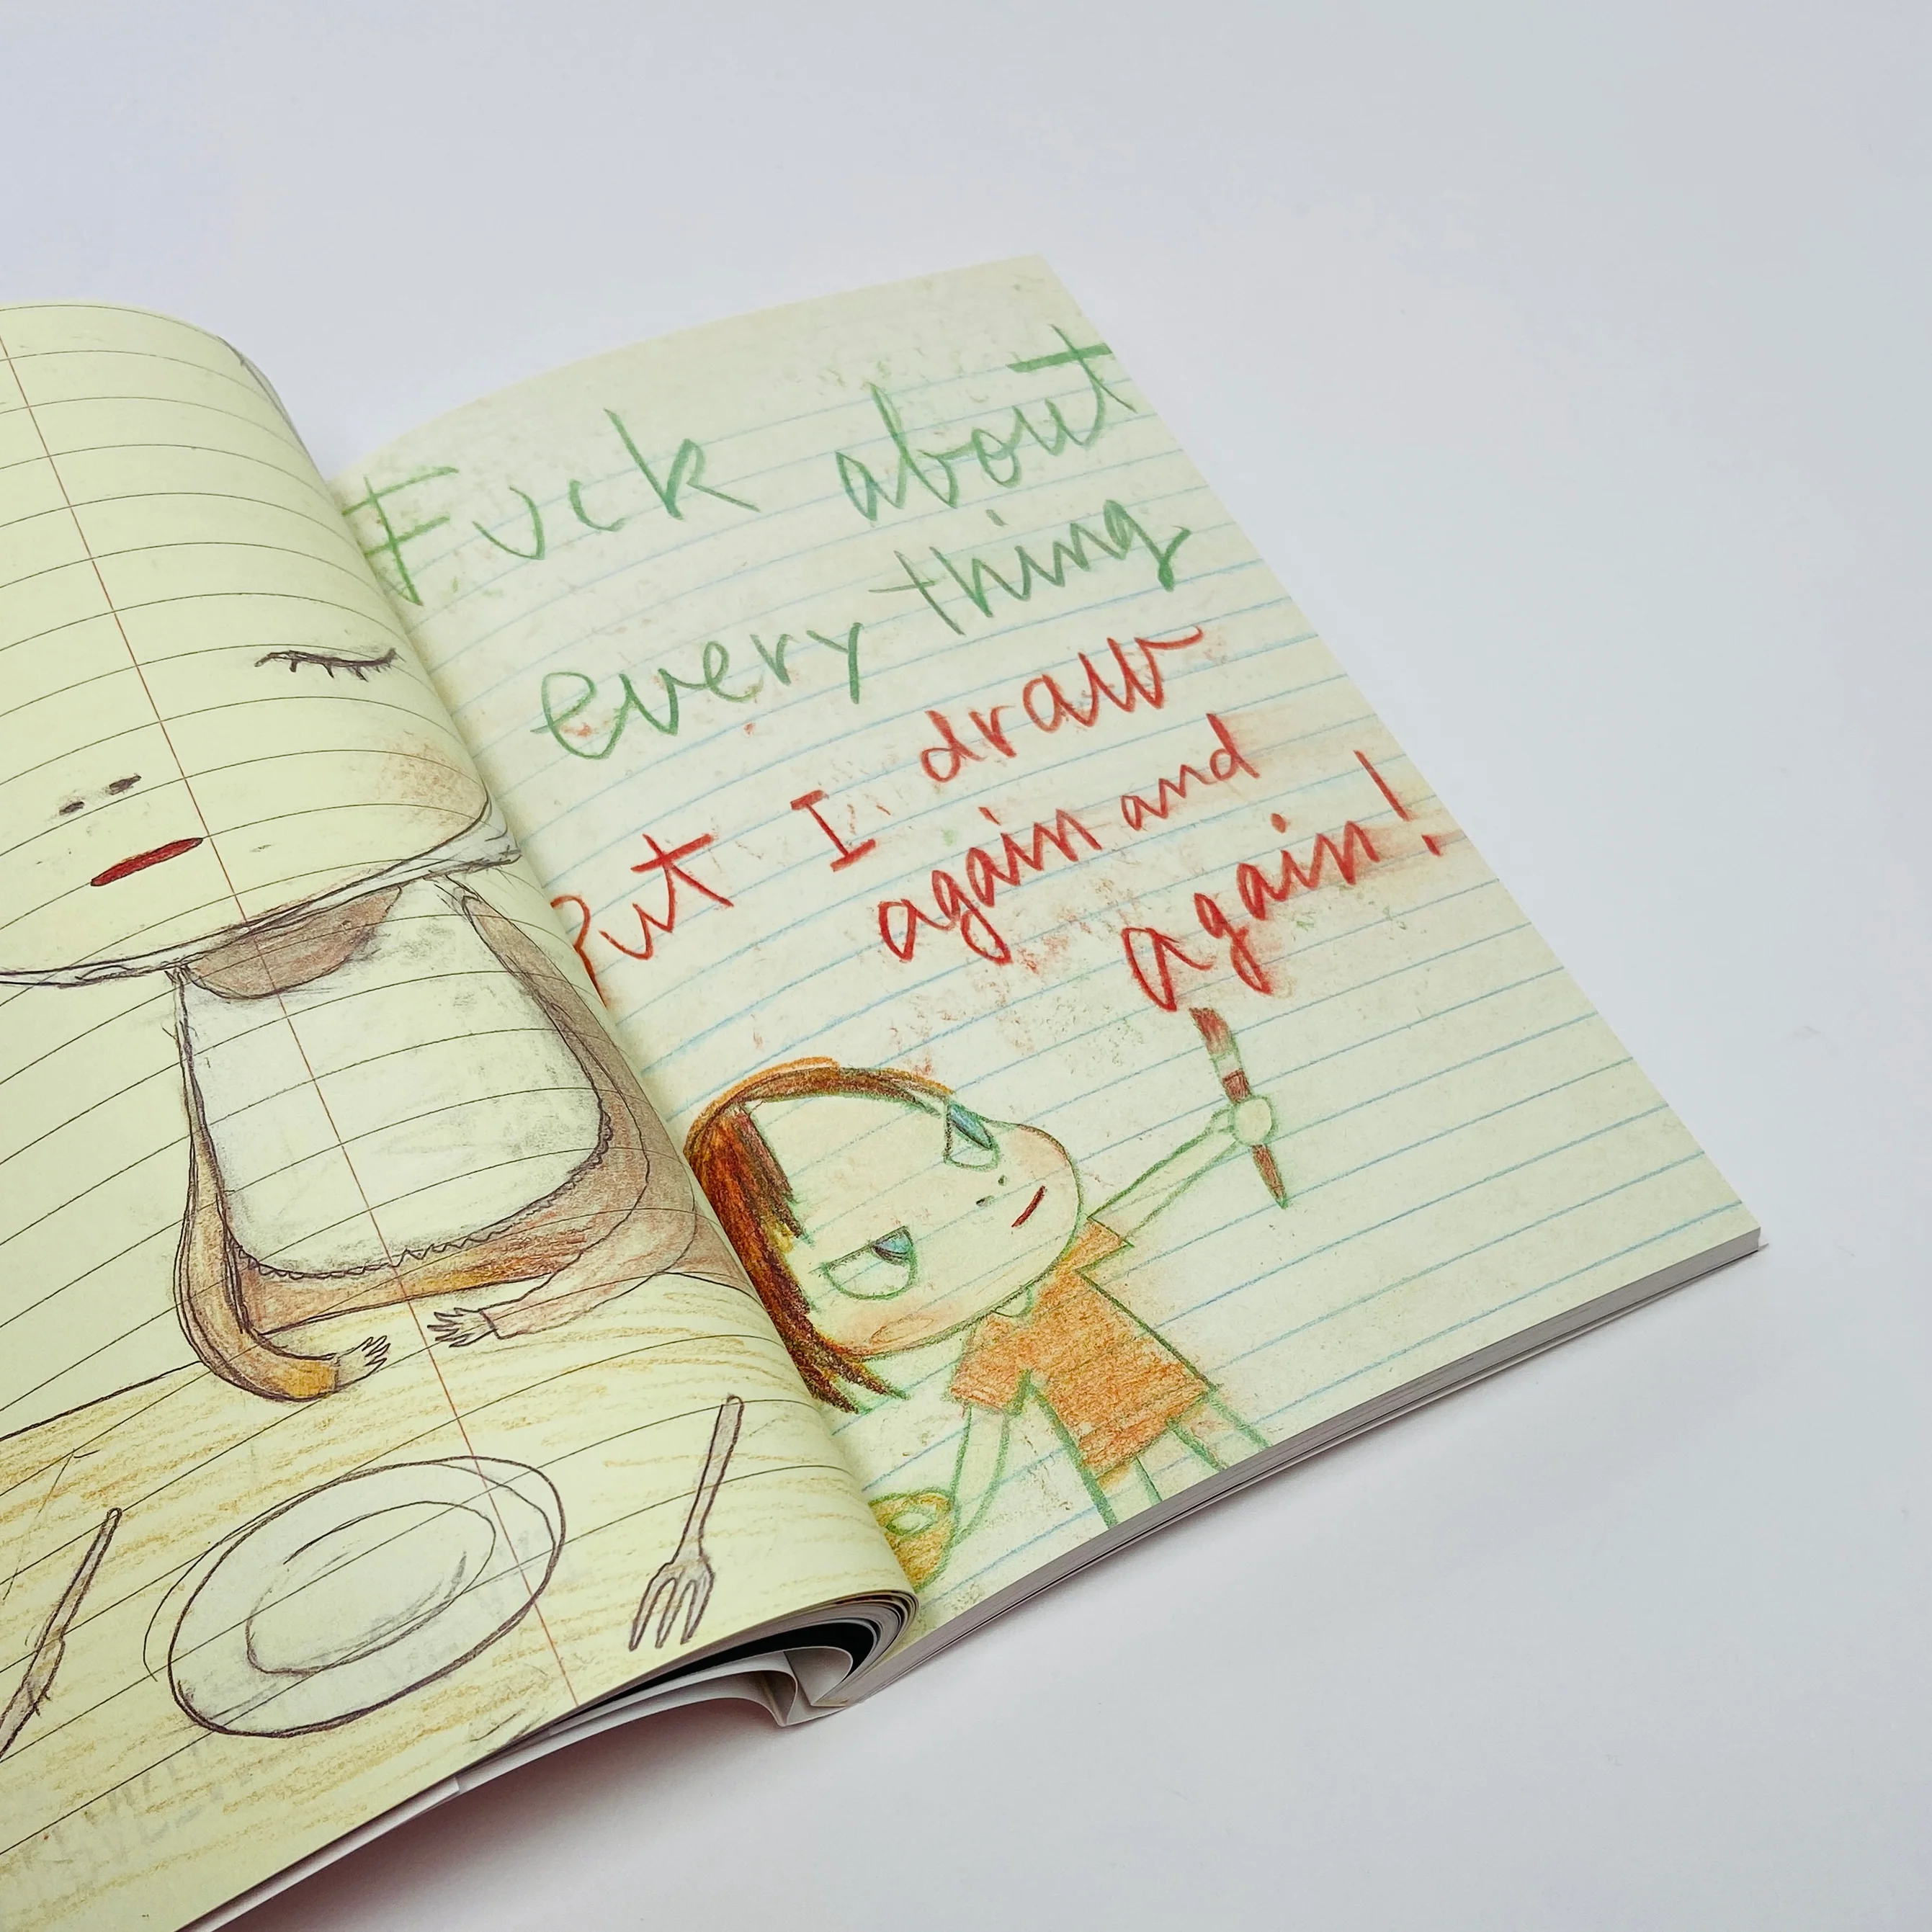 Fuck about
every thing
But I draw
again and
again!